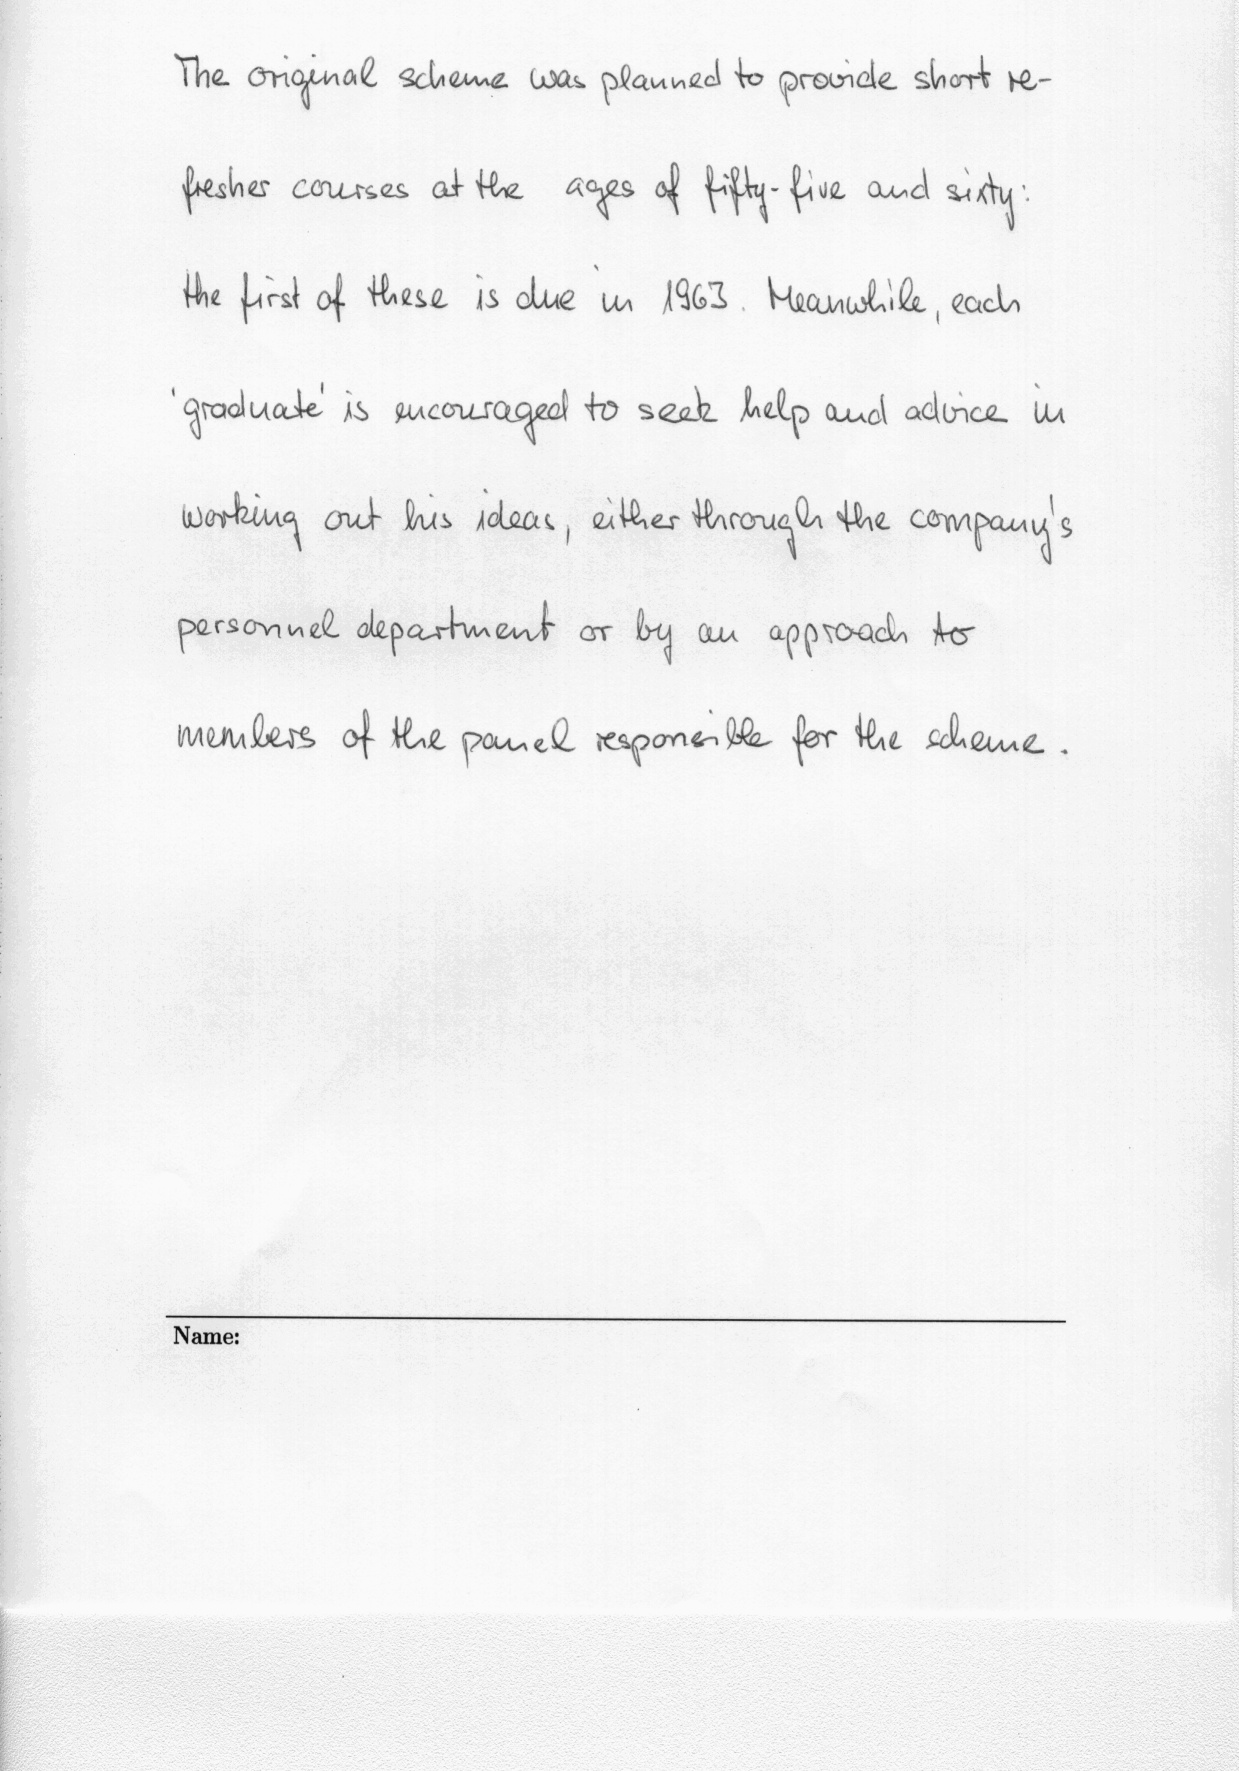 The original scheme was planned to provide short re-
fresher courses at the ages of fifty-five and sixty:
the first of these is due in 1963. Meanwhile, each
'graduate' is encouraged to seek help and advice in
working out his ideas, either through the company's
personnel department or by an approach to
members of the panel responsible for the scheme.
Name: